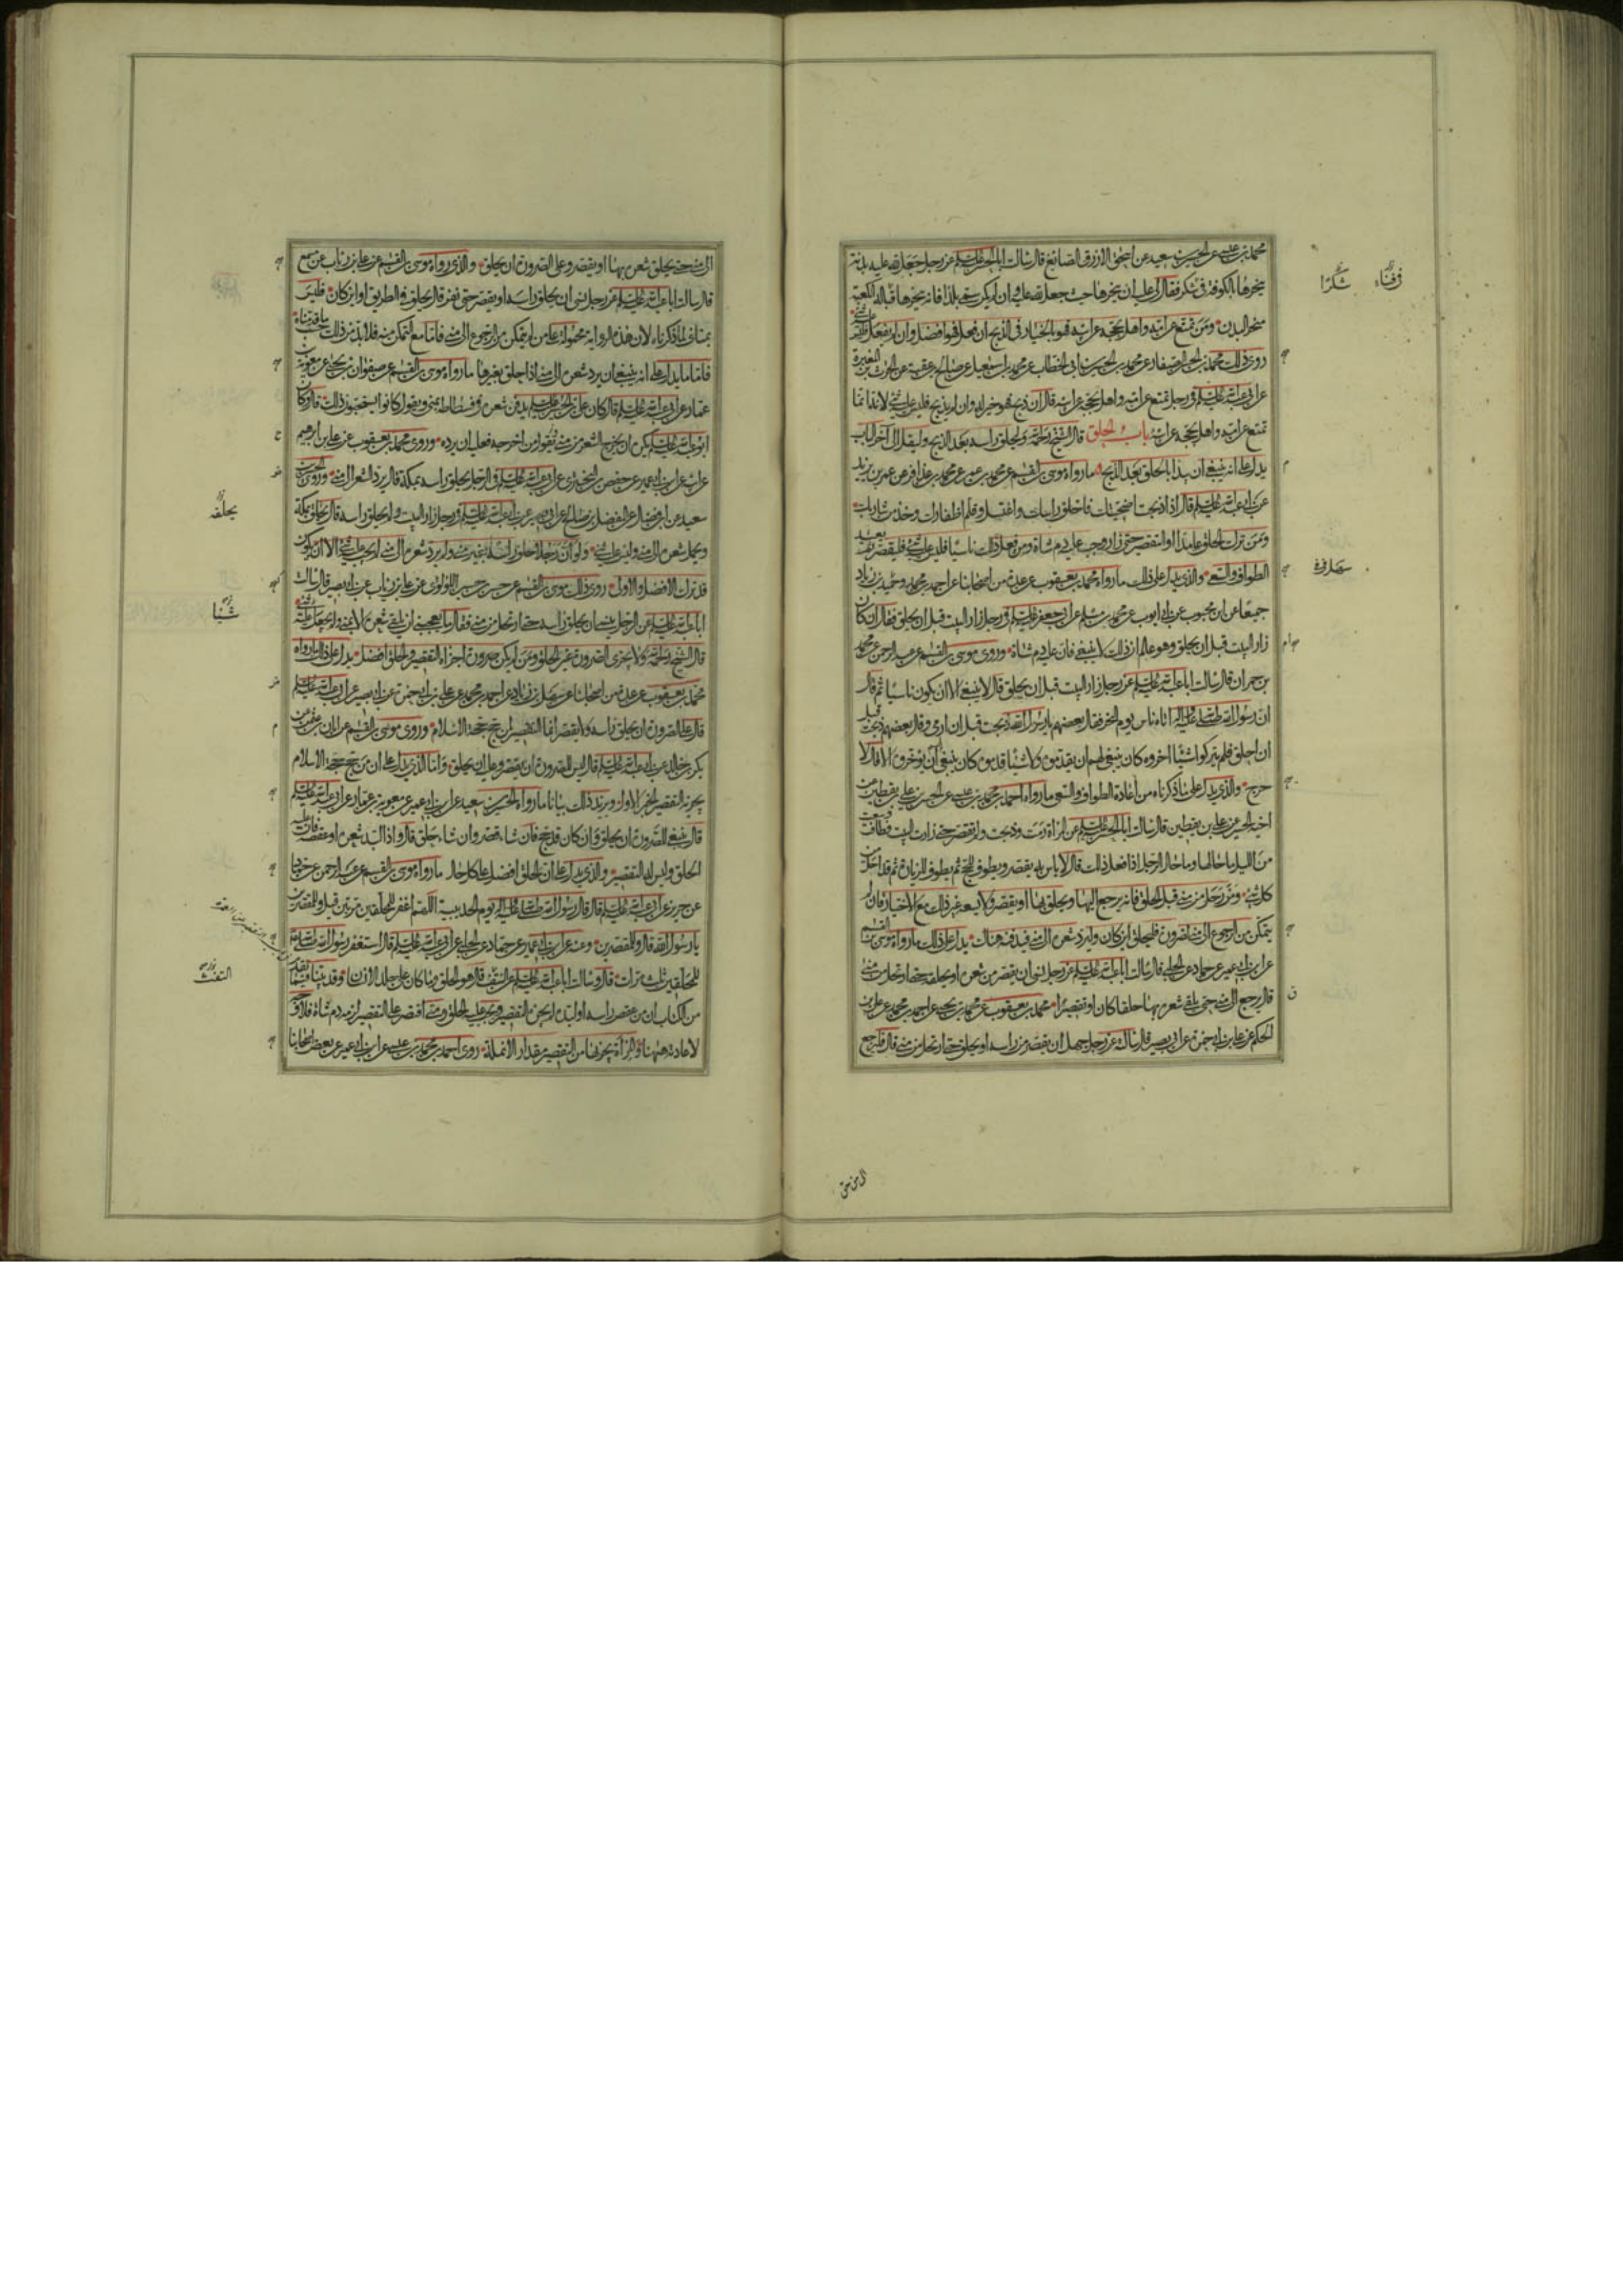 محمد بن عيسى عن الحسين بن سعيد عن اسحق الازرق الصائغ قال سالت ابا الحسن عليه السلم عن رجل جعل لله عليه بدنة
ينحرها بالكوفة فى شكر فقال لى عليه ان ينحرها حيث جعل لله عليه وان لم يكن سمى بلدا فانه ينحرها قبالة الكعبة
منحر البدن ومن تمتع عن امه واهل بحجه عن ابيه فهو بالخيار فى الذبح ان فعل فهو افضل وان لم يفعل فليس عليه شئ
روى ذلك محمد بن الحسن الصفار عن محمد بن الحسين بن ابى الخطاب عن محمد بن اسمعيل عن صالح بن عقبة عن الحرث بن المغيرة
عن ابى عبد الله عليه السلم فى رجل تمتع عن امه واهل بحجه عن ابيه قال ان ذبح فهو خير له وان لم يذبح فليس عليه شئ لانه انما
تمتع عن امه واهل بحجه عن ابيه باب الحلق قال الشيخ رحمه الله وليحلق راسه بعد الذبح وليقل الى آخر الباب
يدل على انه ينبغى ان يبدا بالحلق بعد الذبح ما رواه موسى بن القسم عن محمد بن عمر عن محمد بن عذافر عن عمر بن يزيد
عن ابى عبد الله عليه السلم قال اذا ذبحت اضحيتك فاحلق راسك واغتسل وقلم اظفارك وخذ من شاربك
ومن ترك الحلق عامدا او التقصير حتى زار وجب عليه دم شاة ومن فعل ذلك ناسيا فليس عليه شئ فليقصر بعيد
الطواف والسعى والذى يدل على ذلك ما رواه محمد بن يعقوب عن عدة من اصحابنا عن احمد بن محمد وسهل بن زياد
جميعا عن ابن محبوب عن ابى ايوب عن محمد بن مسلم عن ابى جعفر عليه السلم فى رجل زار البيت قبل ان يحلق فقال ان كان
زار البيت قبل ان يحلق وهو عالم ان ذلك لا ينبغى فان عليه دم شاة وروى موسى بن القسم عن عبد الرحمن عن محمد
بن حمران قال سالت ابا عبد الله عليه السلم عن رجل زار البيت قبل ان يحلق قال لا ينبغى الا ان يكون ناسيا ثم قال
ان رسول الله صلى الله عليه واله اتاه ناس يوم النحر فقال بعضهم يا رسول الله ذبحت قبل ان ارمى وقال بعضهم ذبحت قبل
ان احلق فلم يتركوا شيئا اخروه كان ينبغى لهم ان يقدموه ولا شيئا قدموه كان ينبغى ان يؤخروه الا قال لا
حرج والذى يدل على ما ذكرناه من اعادة الطواف والسعى ما رواه احمد بن محمد بن عيسى عن الحسن بن على بن يقطين عن
اخيه الحسين عن على بن يقطين قال سالت ابا الحسن عليه السلم عن المراة رمت وذبحت ولم تقصر حتى زارت البيت فطافت وسعت
من الليل ما حالها وما حال الرجل اذا فعل ذلك قال لا باس به يقصر ويطوف للحج ثم يطوف للزيارة ثم قد احل من
كل شئ ومن رحل من منى قبل الحلق فانه يرجع اليها ويحلق بها او يقصر ولا يسعه غير ذلك مع الاختيار فان لم
يتمكن من الرجوع الى منى لضرورة فليحلق اين كان وليرد شعره الى منى فيدفنه هناك يدل على ذلك ما رواه موسى بن القسم
عن ابن ابى عمير عن حماد عن الحلبى قال سالت ابا عبد الله عليه السلم عن رجل نسى ان يقصر من شعره او يحلقه حتى ارتحل من منى
قال يرجع الى منى حتى يلقى شعره بها حلقا كان او تقصيرا محمد بن يعقوب عن محمد بن يحيى عن احمد بن محمد عن على بن
الحكم عن على بن ابى حمزة عن ابى بصير قال سالته عن رجل جهل ان يقصر من راسه او يحلق حتى ارتحل من منى قال فليرجع
شكرا
الى منى حتى
الى منى حتى يحلق شعره بها او يقصر وعلى الصرورة ان يحلق والذى رواه موسى بن القسم عن على بن رئاب عن مسمع
قال سالت ابا عبد الله عليه السلم عن رجل نسى ان يحلق راسه او يقصر حتى نفر قال يحلق فى الطريق او اين كان فليس
بمناف لما ذكرناه لان هذه الرواية محمولة على من لم يتمكن من الرجوع الى منى فاما مع التمكن منه فلا بد من ذلك حسب ما قدمناه
فاما ما يدل على انه ينبغى ان يرد شعره الى منى اذا حلق بغيرها ما رواه موسى بن القسم عن صفوان بن يحيى عن معوية بن
عمار عن ابى عبد الله عليه السلم قال كان على بن الحسين عليه السلم يدفن شعره فى فسطاطه بمنى ويقول كانوا يستحبون ذلك قال وكان
ابو عبد الله عليه السلم يكره ان يخرج الشعر من منى ويقول من اخرجه فعليه ان يرده وروى محمد بن يعقوب عن على بن ابرهيم
عن ابيه عن ابن ابى عمير عن حفص بن البخترى عن ابى عبد الله عليه السلم فى الرجل يحلق راسه بمكة قال يرد الشعر الى منى وروى الحسين بن
سعيد عن ابن فضال عن المفضل بن صالح عن ابى بصير عن ابى عبد الله عليه السلم فى رجل زار البيت ولم يحلق راسه قال يحلق بمكة
ويحمل شعره الى منى وليس عليه شئ ولو ان رجلا حلق راسه بغير منى ولم يرد شعره الى منى لم يجب عليه شئ الا انه يكون
قد ترك الافضل والاولى روى ذلك موسى بن القسم عن حسن بن حسين اللؤلؤى عن على بن رئاب عن ابى بصير قال سالت
ابا عبد الله عليه السلم عن الرجل ينسى ان يحلق راسه حتى ارتحل من منى فقال ما يعجبنى ان يلقى شعره الا بمنى ولم يجعل عليه شئ
قال الشيخ رحمه الله ولا يجزى الصرورة غير الحلق ومن لم يكن صرورة اجزاه التقصير والحلق افضل يدل على ذلك ما رواه
محمد بن يعقوب عن عدة من اصحابنا عن سهل بن زياد عن احمد بن محمد عن على بن ابى حمزة عن ابى بصير عن ابى عبد الله عليه السلم
قال على الصرورة ان يحلق راسه ولا يقصر انما التقصير لمن حج حجة الاسلام وروى موسى بن القسم عن ابان بن عثمن عن
بكر بن خالد عن ابى عبد الله عليه السلم قال ليس للصرورة ان يقصر وعليه ان يحلق واما الذى يدل على ان من حج حجة الاسلام
يجزيه التقصير الخبر الاول ويزيد ذلك بيانا ما رواه الحسين بن سعيد عن ابن ابى عمير عن معوية بن عمار عن ابى عبد الله عليه السلم
قال ينبغى للصرورة ان يحلق وان كان قد حج فان شاء قصر وان شاء حلق قال واذا لبد شعره او عقصه فان عليه
الحلق وليس له التقصير والذى يدل على ان الحلق افضل على كل حال ما رواه موسى بن القسم عن عبد الرحمن عن حماد
عن حريز عن ابى عبد الله عليه السلم قال قال رسول الله صلى الله عليه واله يوم الحديبية اللهم اغفر للمحلقين مرتين قيل وللمقصرين
يا رسول الله قال وللمقصرين وعنه عن ابن ابى عمير عن حماد عن الحلبى عن ابى عبد الله عليه السلم قال استغفر رسول الله صلى الله عليه واله
للمحلقين ثلث مرات قال وسالت ابا عبد الله عليه السلم عن التفث قال هو الحلق وما كان على جلد الانسان وقد بينا فيما تقدم
من الكتاب ان من عقص راسه او لبده لم يجزه التقصير ويجب عليه الحلق ومتى اقتصر على التقصير لزمه دم شاة فلا وجه
لاعادته ههنا والمراة يجزيها من التقصير مقدار الانملة روى احمد بن محمد بن عيسى عن ابن ابى عمير عن بعض اصحابنا
يحلقه
شيئا
التفث